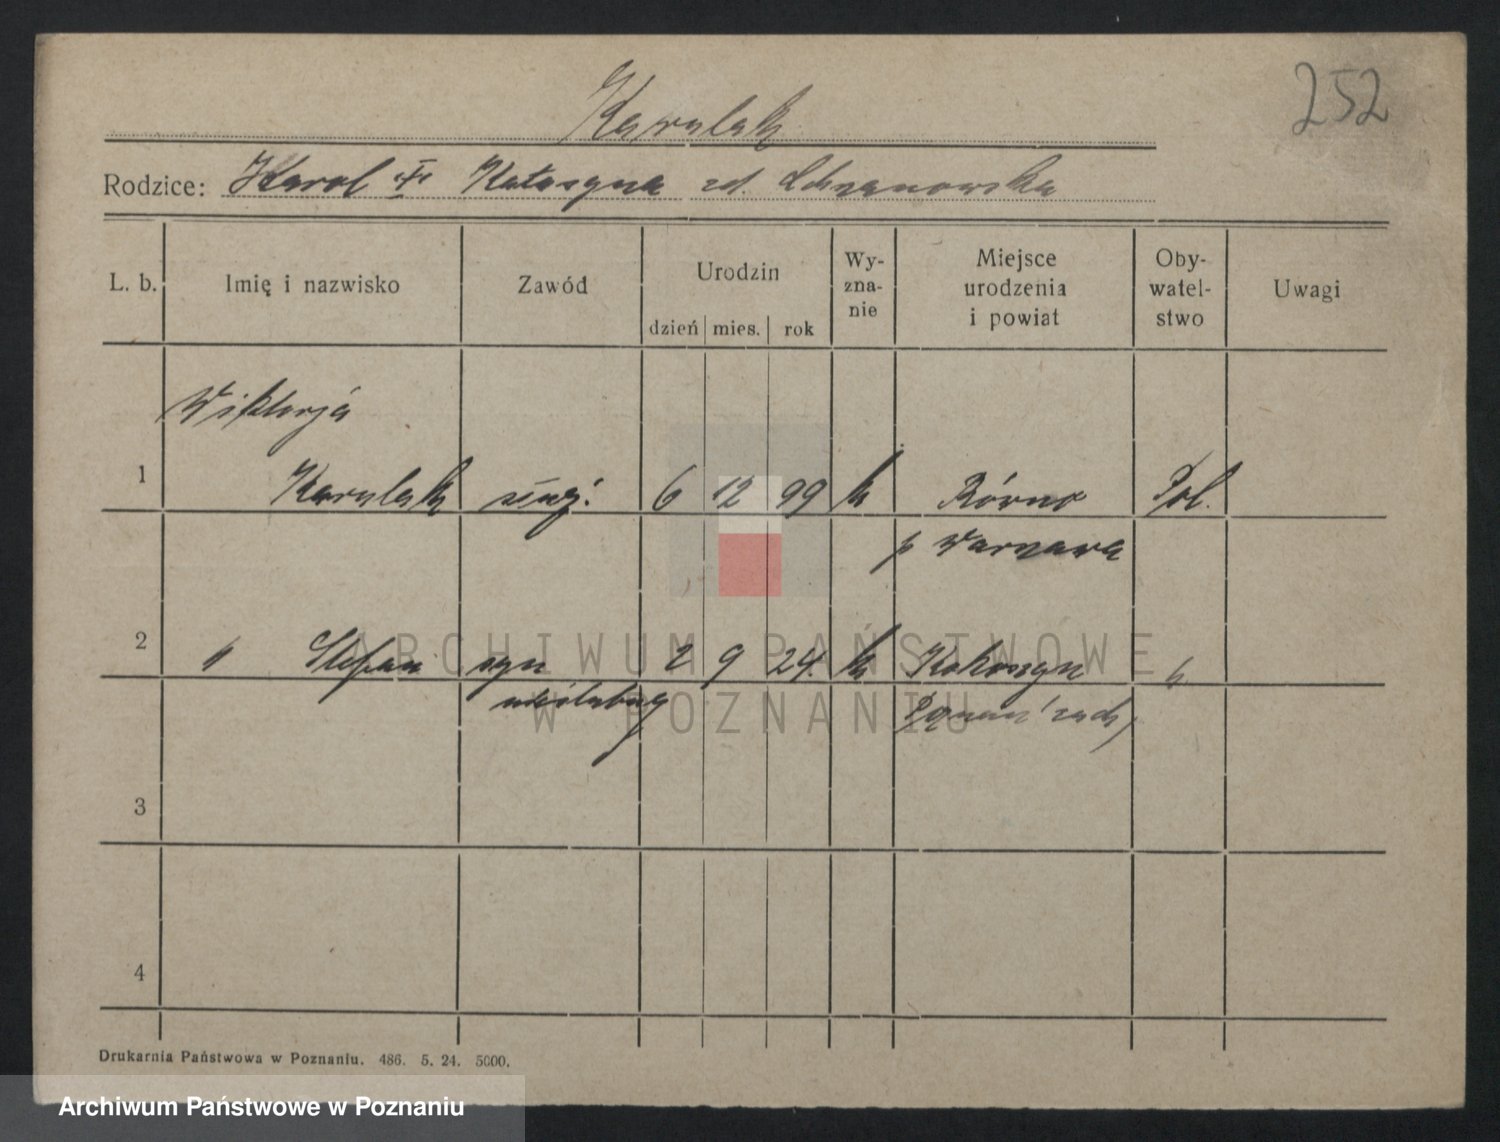 252
Kawulak
Rodzice: Karol Katarzyna zd.
L. b. Imię i nazwisko Zawód Urodzin dzień mies. rok Wy-zna-nie Miejsce urodzenia i powiat Oby-watel-stwo Uwagi
Wiktorja
1 Kawulak służ. 6 12 99 k Równo Pol.
p Warszawa
2 " Stefan syn 2 9 24. k "
nieślubny Poznań zach.
3
4
Drukarnia Państwowa w Poznaniu. 486. 5. 24. 5000.
ARCHIWUM PAŃSTWOWE
W POZNANIU
Archiwum Państwowe w Poznaniu